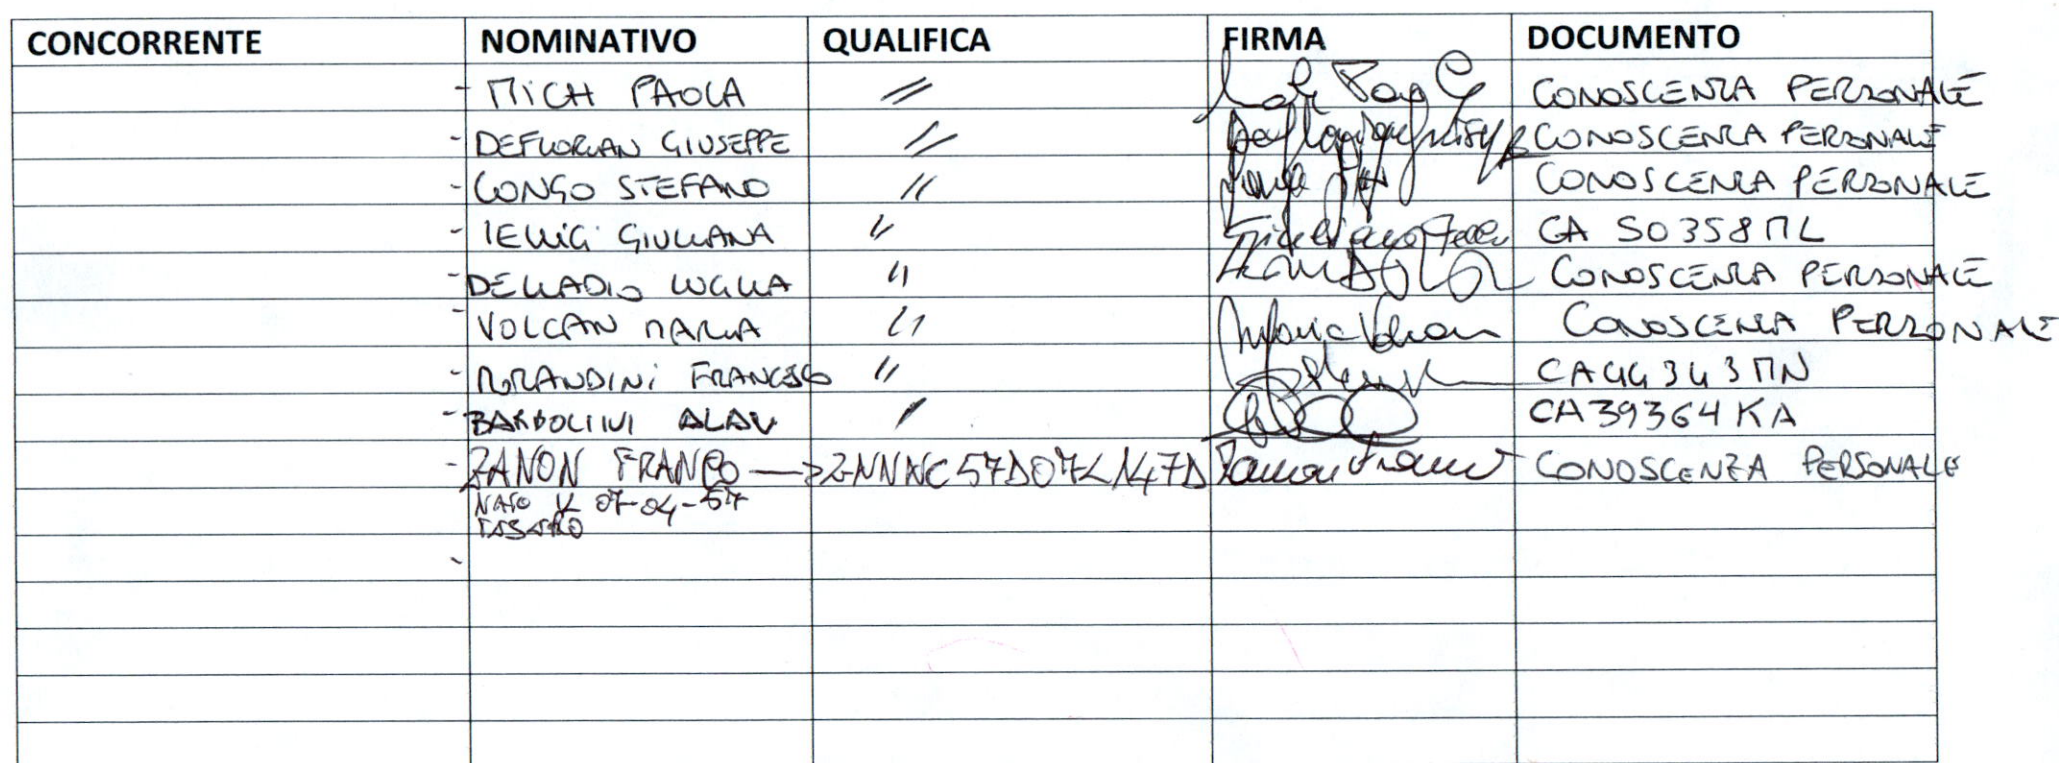 CONCORRENTE NOMINATIVO QUALIFICA FIRMA DOCUMENTO
- MICH PAOLA // CONOSCENZA PERSONALE
- DEFLORIAN GIUSEPPE // CONOSCENZA PERSONALE
- LONGO STEFANO // CONOSCENZA PERSONALE
- GIULIANA // CA 50358ML
- DELLADIO LUCILLA // CONOSCENZA PERSONALE
- VOLCAN MARIA // Maria Volcan CONOSCENZA PERSONALE
- MORANDINI FRANCESCO // CA44343MN
- BARBOLINI ALAN / CA39364KA
- ZANON FRANCO Zanon Franco CONOSCENZA PERSONALE
NATO 07-04-57
-